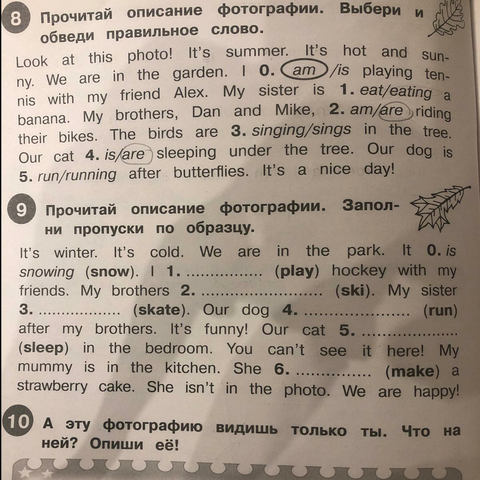 8 Прочитай описание фотографии. Выбери и
обведи правильное слово.
Look at this photo! It's summer. It's hot and sun-
ny. We are in the garden. I 0. am/is playing ten-
nis with my friend Alex. My sister is 1. eat/eating a
banana. My brothers, Dan and Mike, 2. am/are riding
their bikes. The birds are 3. singing/sings in the tree.
Our cat 4. is/are sleeping under the tree. Our dog is
5. run/running after butterflies. It's a nice day!
9 Прочитай описание фотографии. Запол-
ни пропуски по образцу.
It's winter. It's cold. We are in the park. It 0. is
snowing (snow). I 1. ................ (play) hockey with my
friends. My brothers 2. ......................... (ski). My sister
3. ................. (skate). Our dog 4. .................. (run)
after my brothers. It's funny! Our cat 5. ....................
(sleep) in the bedroom. You can't see it here! My
mummy is in the kitchen. She 6. ............... (make) a
strawberry cake. She isn't in the photo. We are happy!
10 А эту фотографию видишь только ты. Что на
ней? Опиши её!